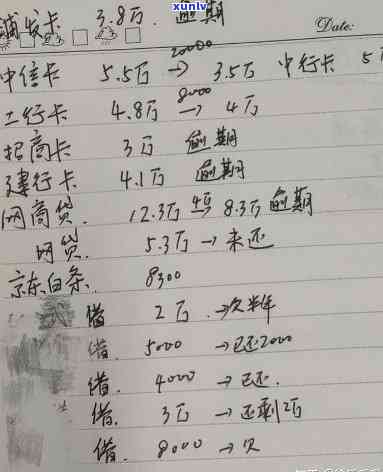 xunlv
浦发卡 3.8万. 逾期
Date:
20000
中信卡 5.5万 → 3.5万 中行卡 5
8000
工行卡 4.8万 → 4万
招商卡 3万 逾期
建行卡 4.1万 逾期
网商贷. 12.3万 8.3万 逾期
网贷 5.3万 → 未还
京东白条. 8300
借 2万 → 欠半年
借. 5000 → 已还2000
借. 4000 → 已还.
借. 3万 → 还剩2万
借. 8000 → 欠